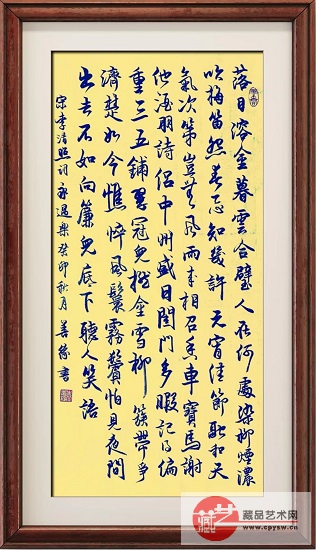 落日溶金暮雲合璧人在何處染柳煙濃
吹梅笛怨春意知幾許元宵佳節融和天
氣次第豈無風雨來相召香車寶馬謝
他酒朋詩侶中州盛日閨門多暇記得偏
重三五鋪翠冠兒撚金雪柳簇帶爭
濟楚如今憔悴風鬟霧鬢怕見夜間
出去不如向簾兒底下聽人笑語
宋李清照詞永遇樂癸卯秋月善書
藏品艺术网
www.cpysw.cn